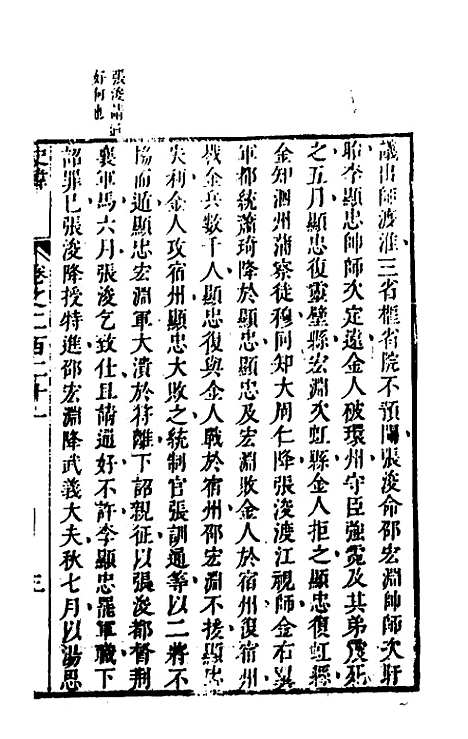 議出師渡淮三省樞省院不預聞張浚命邵宏淵帥師次盱
眙李顯忠帥師次定遠金人破環州守臣強霓及其弟震死
之五月顯忠復靈璧縣宏淵次虹縣金人拒之顯忠復虹縣
金知泗州蒲察徒穆同知大周仁降張浚渡江視師金右翼
軍都統蕭琦降於顯忠顯忠及宏淵敗金人於宿州復宿州
戮金兵數千人顯忠復與金人戰於宿州邵宏淵不援顯忠
失利金人攻宿州顯忠大敗之統制官張訓通等以二將不
協而遁顯忠宏淵軍大潰於符離下詔親征以張浚都督荊
襄軍馬六月張浚乞致仕且請通好不許李顯忠罷軍職下
詔罪己張浚降授特進邵宏淵降武義大夫秋七月以湯思
張浚請通
好何也
史緯
卷之二百二十一
三